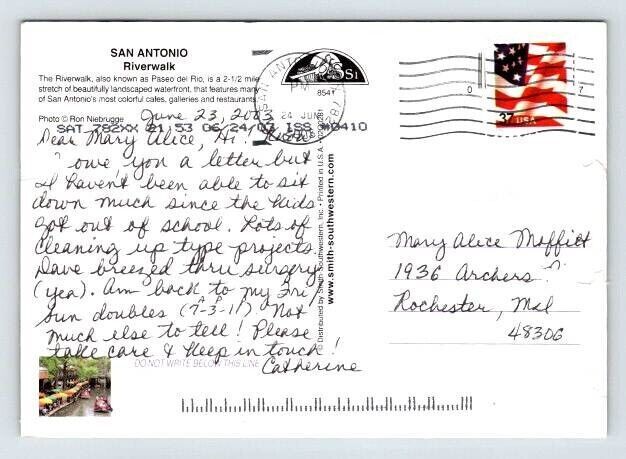 SAN ANTONIO
Riverwalk
The Riverwalk, also known as Paseo del Rio, is a 2-1/2 mile
stretch of beautifully landscaped waterfront, that features many
of San Antonio's most colorful cafes, galleries and restaurants.
Photo © Ron Niebrugge
June 23, 2003
SAT 782XX 21 53 06/24/03 ISS #0410
Dear Mary Alice, Hi!
owe you a letter but
I haven't been able to sit
down much since the kids
got out of school. Lots of
cleaning up type projects
Dave breezed thru surgery
(yea). Am back to my Fri,
Sun doubles (7-3-11) Not
A P
much else to tell! Please
take care & keep in touch!
Catherine
DO NOT WRITE BELOW THIS LINE
SAN ANTONIO
PM
24 JUN
S1
8541
© Distributed by Smith Southwestern, Inc. • Printed in U.S.A.
www.smith-southwestern.com
37 USA
0
7
Mary Alice Moffitt
1936 Archers
Rochester, Md
48306